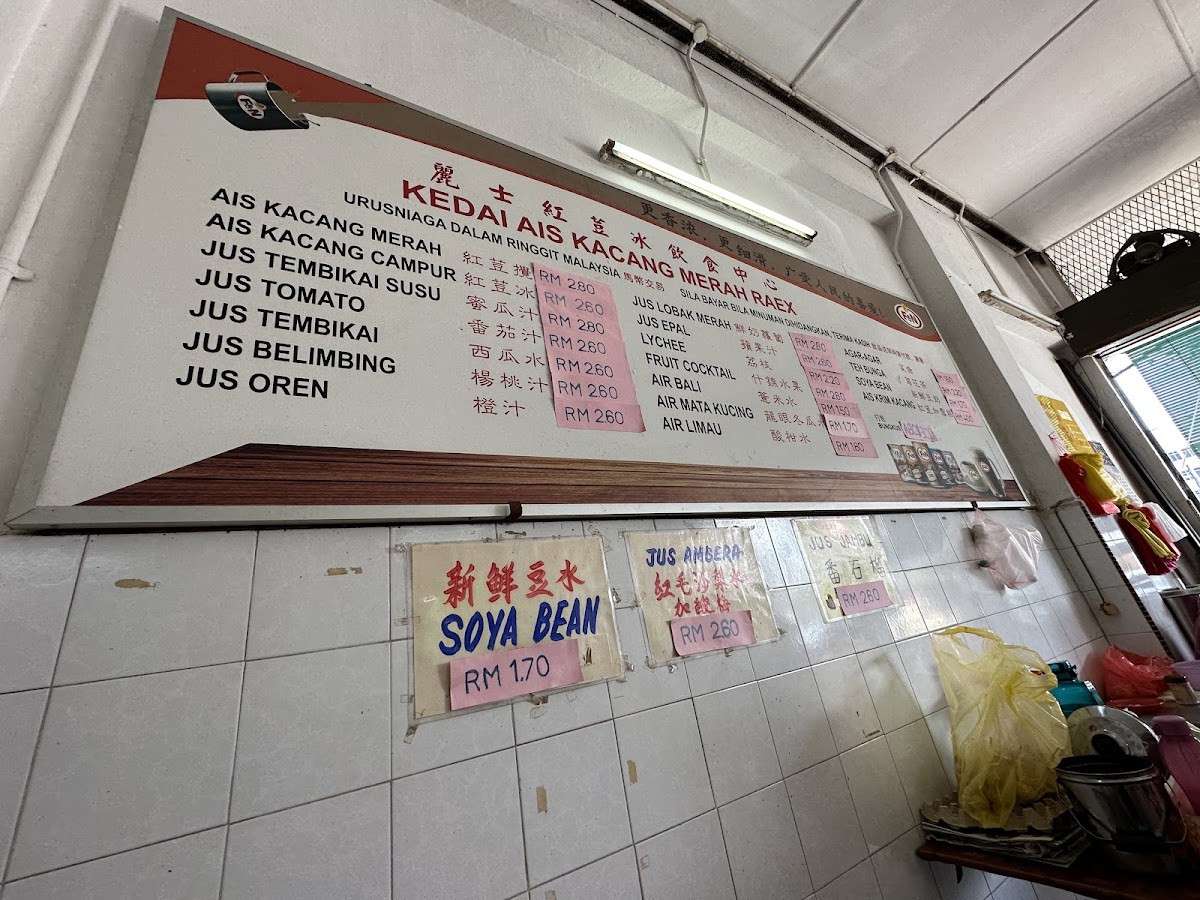 F&N
更香浓，更细滑，广受人民的喜爱！
F&N
麗士紅荳冰飲食中心
KEDAI AIS KACANG MERAH RAEX
URUSNIAGA DALAM RINGGIT MALAYSIA 馬幣交易 SILA BAYAR BILA MINUMAN DIHIDANGKAN TERIMA KASIH
AIS KACANG MERAH 紅荳攪 RM 2.80
AIS KACANG CAMPUR 紅荳冰 RM 2.60
JUS TEMBIKAI SUSU 蜜瓜汁 RM 2.80
JUS TOMATO 番茄汁 RM 2.60
JUS TEMBIKAI 西瓜水 RM 2.60
JUS BELIMBING 楊桃汁 RM 2.60
JUS OREN 橙汁 RM 2.60
JUS LOBAK MERAH 鮮奶蘿蔔 RM 2.80
JUS EPAL 蘋果汁 RM 2.60
LYCHEE 荔枝 RM 2.20
FRUIT COCKTAIL 什錦水果 RM 2.60
AIR BALI 薏米水 RM 1.50
AIR MATA KUCING 龍眼冬瓜水 RM 1.70
AIR LIMAU 酸柑水 RM 1.60
AGAR-AGAR
TEH BUNGA
SOYA BEAN
AIS KRIM KACANG
BUNGKUS
新鮮豆水
SOYA BEAN
RM 1.70
JUS AMBERA
紅毛沙梨水
加酸梅
RM 2.60
JUS JAMBU
番石榴
RM 2.60